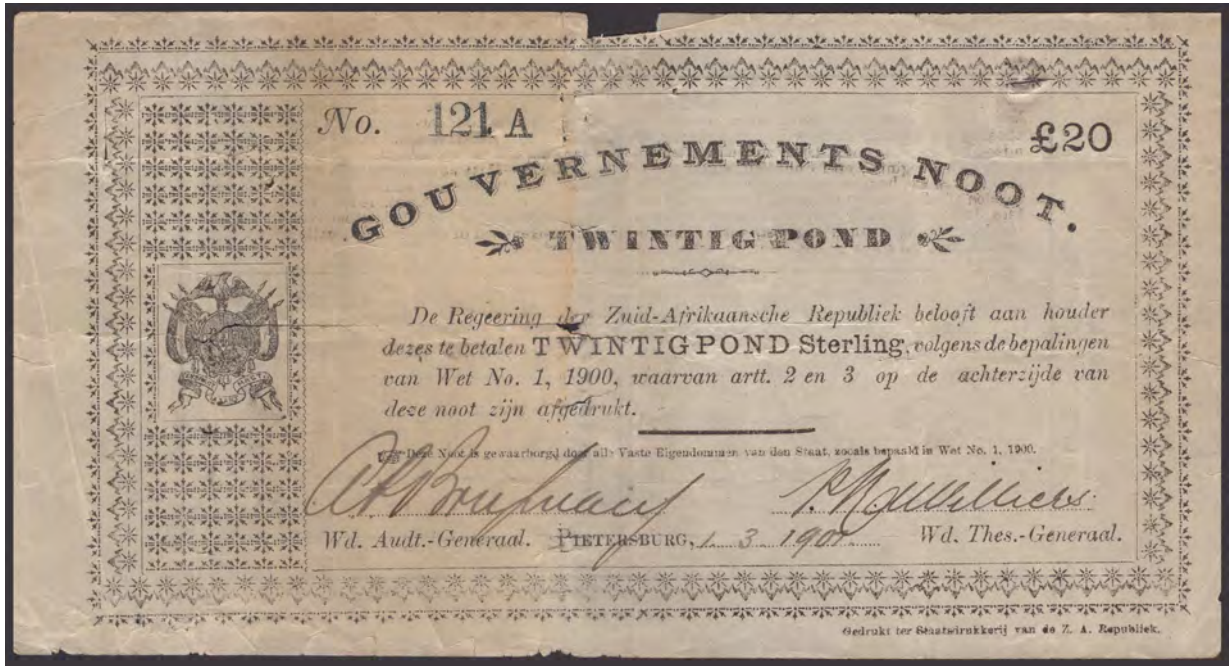 No. 121 A
£20
GOUVERNEMENTS NOOT.
TWINTIG POND
De Regeering der Zuid-Afrikaansche Republiek belooft aan houder
dezes te betalen TWINTIG POND Sterling, volgens de bepalingen
van Wet No. 1, 1900, waarvan artt. 2 en 3 op de achterzijde van
deze noot zijn afgedrukt.
Deze Noot is gewaarborgd door alle Vaste Eigendommen van den Staat, zooals bepaald in Wet No. 1, 1900.
Wd. Audt.-Generaal. PIETERSBURG, 1. 3. 1901 Wd. Thes.-Generaal.
Gedrukt ter Staatsdrukkerij van de Z. A. Republiek.